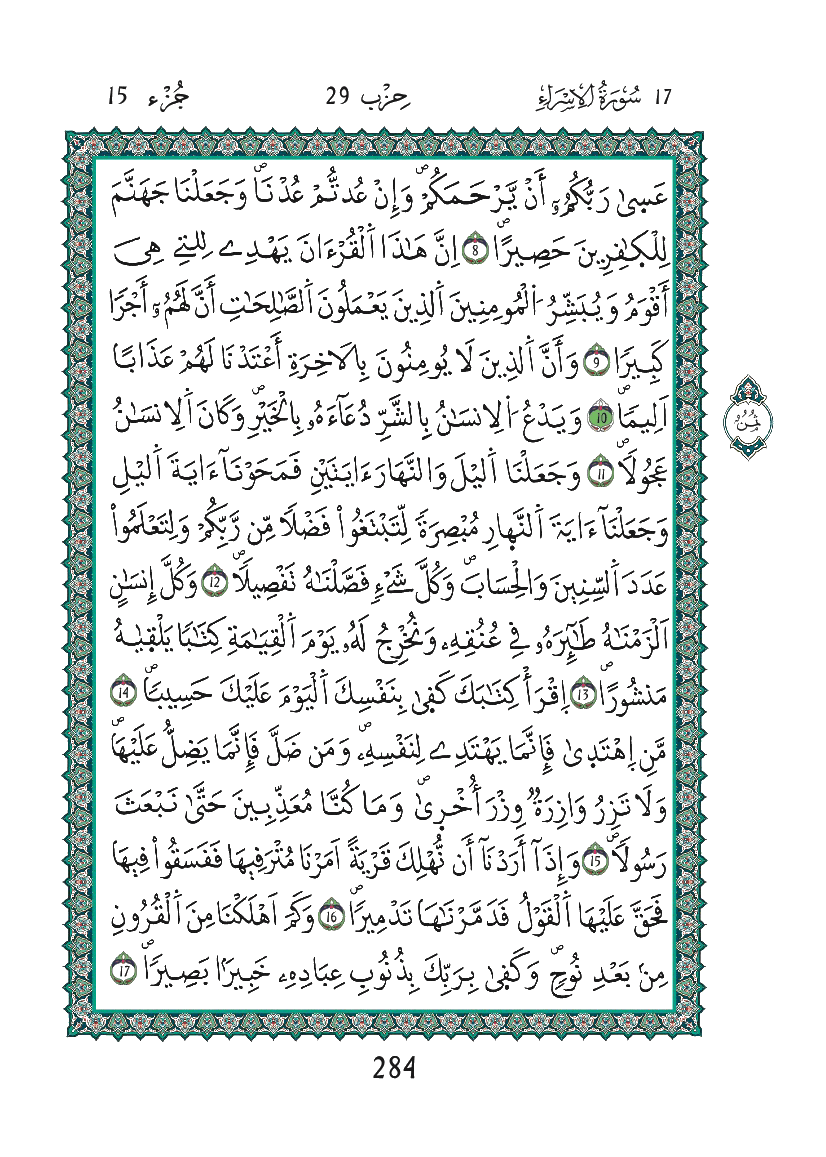 17 سُورَةُ الِاسْرَاءِ حِزْب 29 جُزْء 15
عَسٜىٰ رَبُّكُمُۥٓ أَنْ يَّرْحَمَكُمْۖ وَإِنْ عُدتُّمْ عُدْنَاۖ وَجَعَلْنَا جَهَنَّمَ
لِلْكٰٜفِرِينَ حَصِيرًاۖ 8 اِنَّ هَٰذَا اَ۬لْقُرْءَانَ يَهْدِے لِلتِے هِيَ
أَقْوَمُ وَيُبَشِّرُ اُ۬لْمُومِنِينَ اَ۬لذِينَ يَعْمَلُونَ اَ۬لصَّٰلِحَٰتِ أَنَّ لَهُمُۥٓ أَجْرًا
كَبِيرًا 9 وَأَنَّ اَ۬لذِينَ لَا يُومِنُونَ بِالَاخِرَةِ أَعْتَدْنَا لَهُمْ عَذَابًا
اَلِيمًاۖ 10 وَيَدْعُ اُ۬لِانسَٰنُ بِالشَّرِّ دُعَآءَهُۥ بِالْخَيْرِۖ وَكَانَ اَ۬لِانسَٰنُ
عَجُولًاۖ 11 وَجَعَلْنَا اَ۬ليْلَ وَالنَّهَارَ ءَايَتَيْنِ فَمَحَوْنَآ ءَايَةَ اَ۬ليْلِ
وَجَعَلْنَآ ءَايَةَ اَ۬لنَّهٜارِ مُبْصِرَةً لِّتَبْتَغُواْ فَضْلًا مِّن رَّبِّكُمْ وَلِتَعْلَمُواْ
عَدَدَ اَ۬لسِّنِينَ وَالْحِسَابَۖ وَكُلَّ شَےْءٍ فَصَّلْنَٰهُ تَفْصِيلًاۖ 12 وَكُلَّ إِنسَٰنٍ
اَلْزَمْنَٰهُ طَٰٓئِرَهُۥ فِے عُنُقِهِۦ وَنُخْرِجُ لَهُۥ يَوْمَ اَ۬لْقِيَٰمَةِ كِتَٰبًا يَلْقٜيٰهُ
مَنشُورًاۖ 13 اِ۪قْرَأْ كِتَٰبَكَ كَفٜىٰ بِنَفْسِكَ اَ۬لْيَوْمَ عَلَيْكَ حَسِيبًاۖ 14
مَّنِ اِ۪هْتَدٜىٰ فَإِنَّمَا يَهْتَدِے لِنَفْسِهِۦۖ وَمَن ضَلَّ فَإِنَّمَا يَضِلُّ عَلَيْهَاۖ
وَلَا تَزِرُ وَازِرَةٌ وِزْرَ أُخْرٜىٰۖ وَمَا كُنَّا مُعَذِّبِينَ حَتَّىٰ نَبْعَثَ
رَسُولًاۖ 15 وَإِذَآ أَرَدْنَآ أَن نُّهْلِكَ قَرْيَةً اَمَرْنَا مُتْرَفِيهَا فَفَسَقُواْ فِيهَا
فَحَقَّ عَلَيْهَا اَ۬لْقَوْلُ فَدَمَّرْنَٰهَا تَدْمِيرًاۖ 16 وَكَمَ اَهْلَكْنَا مِنَ اَ۬لْقُرُونِ
مِنۢ بَعْدِ نُوحٍۖ وَكَفٜىٰ بِرَبِّكَ بِذُنُوبِ عِبَادِهِۦ خَبِيرَۢا بَصِيرًاۖ 17
ثُمُن
284